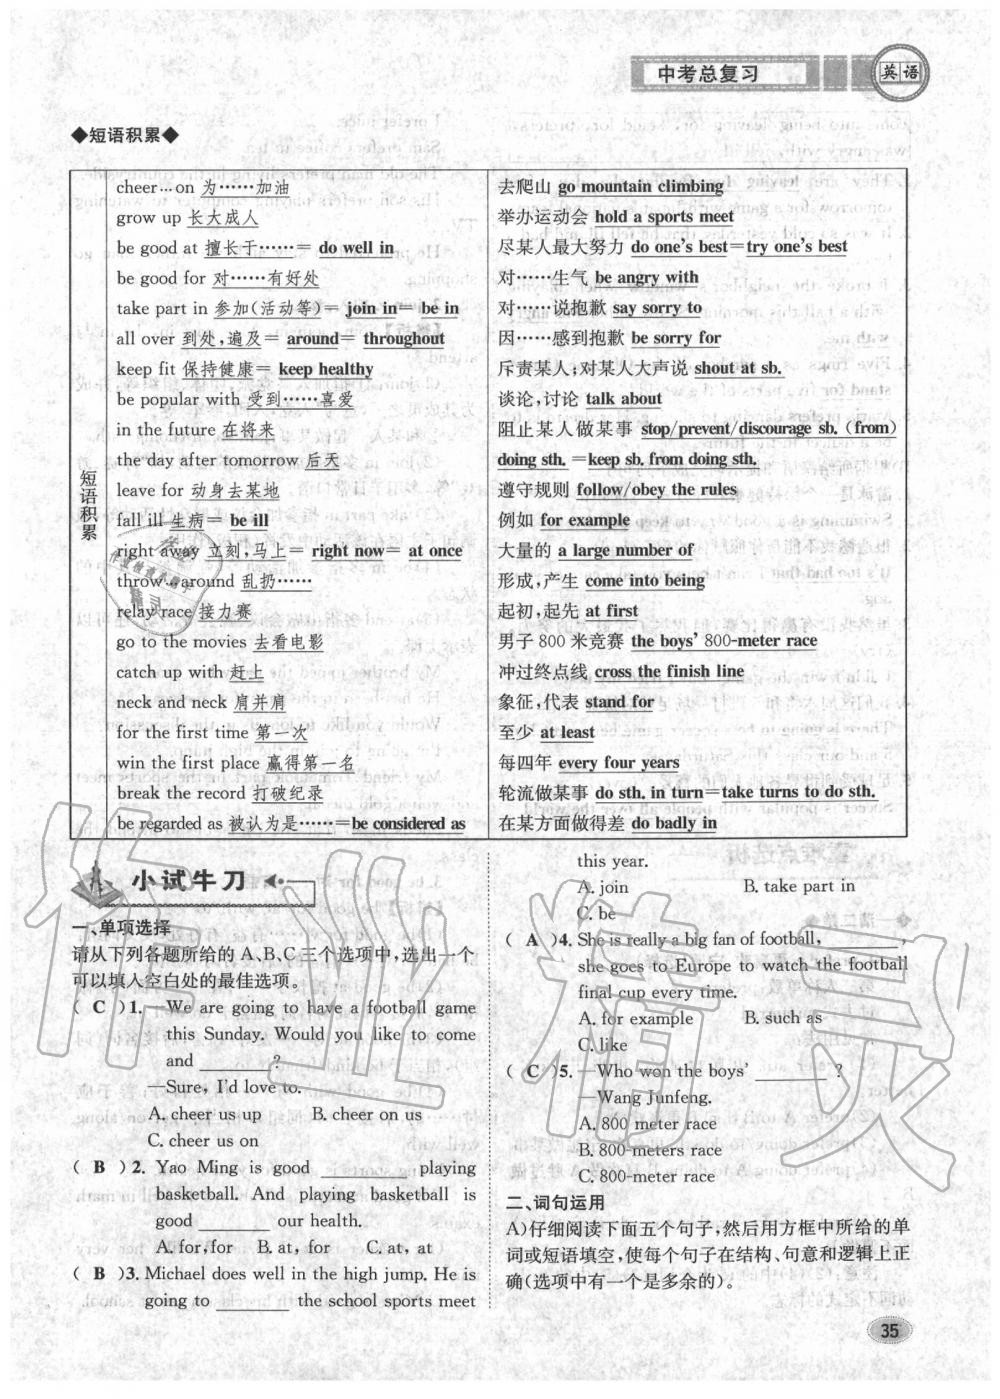 中考总复习
英语
◆短语积累◆
短语积累
cheer…on 为……加油
grow up 长大成人
be good at 擅长于……= do well in
be good for 对……有好处
take part in 参加(活动等)= join in= be in
all over 到处,遍及= around= throughout
keep fit 保持健康= keep healthy
be popular with 受到……喜爱
in the future 在将来
the day after tomorrow 后天
leave for 动身去某地
fall ill 生病= be ill
right away 立刻,马上= right now= at once
throw…around 乱扔……
relay race 接力赛
go to the movies 去看电影
catch up with 赶上
neck and neck 肩并肩
for the first time 第一次
win the first place 赢得第一名
break the record 打破纪录
be regarded as 被认为是……=be considered as
去爬山 go mountain climbing
举办运动会 hold a sports meet
尽某人最大努力 do one's best=try one's best
对……生气 be angry with
对……说抱歉 say sorry to
因……感到抱歉 be sorry for
斥责某人;对某人大声说 shout at sb.
谈论,讨论 talk about
阻止某人做某事 stop/prevent/discourage sb. (from)
doing sth. =keep sb. from doing sth.
遵守规则 follow/obey the rules
例如 for example
大量的 a large number of
形成,产生 come into being
起初,起先 at first
男子 800 米竞赛 the boys' 800-meter race
冲过终点线 cross the finish line
象征,代表 stand for
至少 at least
每四年 every four years
轮流做某事 do sth. in turn=take turns to do sth.
在某方面做得差 do badly in
小试牛刀
一、单项选择
请从下列各题所给的 A、B、C三个选项中,选出一个
可以填入空白处的最佳选项。
( C )1. —We are going to have a football game
this Sunday. Would you like to come
and ________?
—Sure, I'd love to.
A. cheer us up B. cheer on us
C. cheer us on
( B )2. Yao Ming is good ________ playing
basketball. And playing basketball is
good ________ our health.
A. for, for B. at, for C. at, at
( B )3. Michael does well in the high jump. He is
going to ________ the school sports meet
this year.
A. join B. take part in
C. be
( A )4. She is really a big fan of football, ________,
she goes to Europe to watch the football
final cup every time.
A. for example B. such as
C. like
( C )5. —Who won the boys' ________ ?
—Wang Junfeng.
A. 800 meter race
B. 800-meters race
C. 800-meter race
二、词句运用
A)仔细阅读下面五个句子,然后用方框中所给的单
词或短语填空,使每个句子在结构、句意和逻辑上正
确(选项中有一个是多余的)。
35
作业精灵